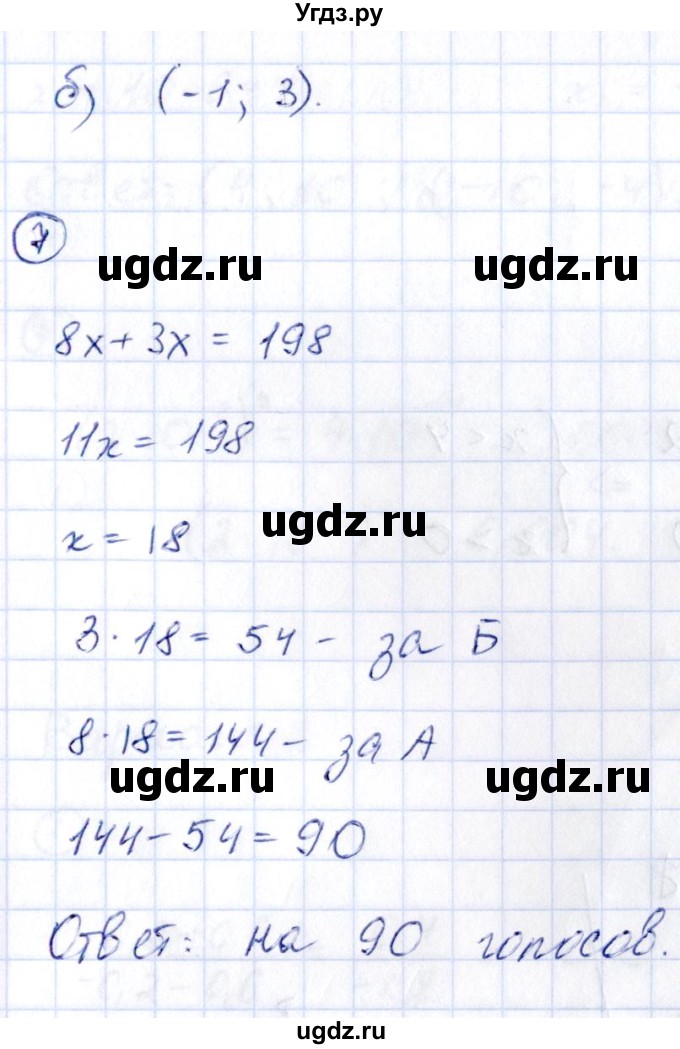 Угдз.ру
б) (-1; 3).
7
ugdz.ru
8x + 3x = 198
11x = 198
ugdz.ru
x = 18
3 · 18 = 54 - за Б
8 · 18 = 144 - за А
ugdz.ru ugdz.ru
144 - 54 = 90
Ответ: на 90 голосов.
ugdz.ru